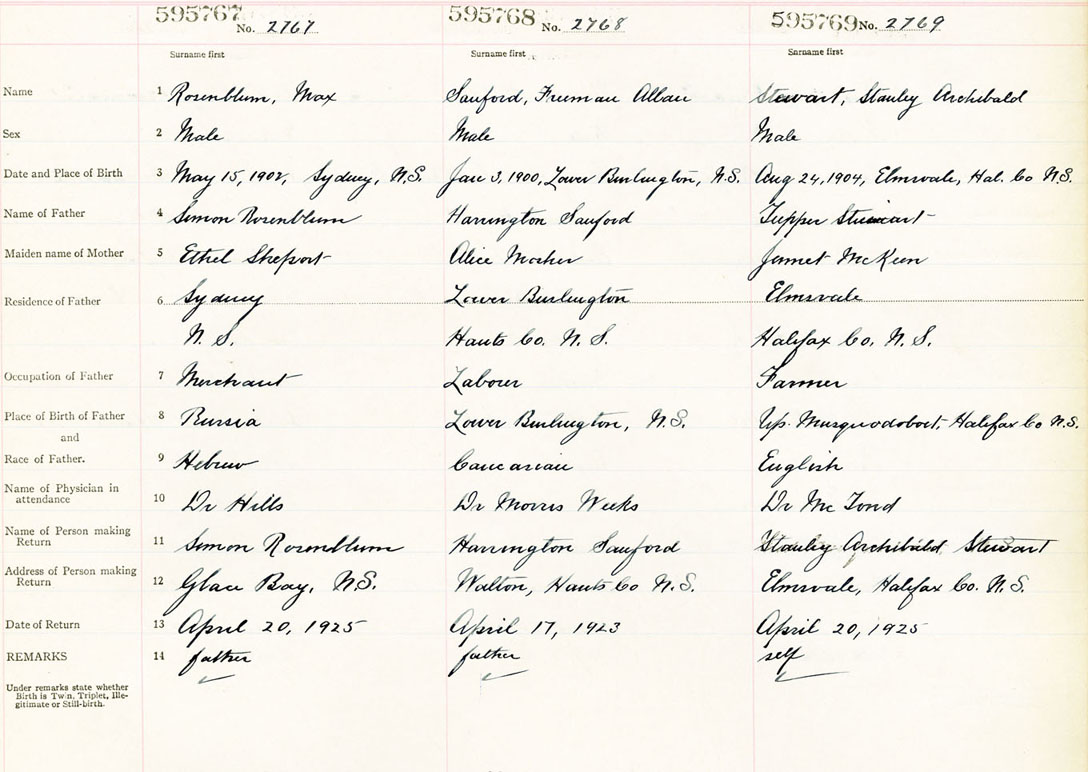 595767 No. 2767 595768 No. 2768 595769 No. 2769
Surname first Surname first Surname first
Name 1 Rosenblum, Max Sanford, Freeman Allan Stewart, Stanley Archibald
Sex 2 Male Male Male
Date and Place of Birth 3 May 15, 1902, Sydney, N.S. June 3, 1900, Lower Burlington, N.S. Aug 24, 1904, Elmsvale, Hal. Co N.S.
Name of Father 4 Simon Rosenblum Harrington Sanford Tupper Stewart
Maiden name of Mother 5 Ethel Sheport Alice Mosher Jannet McKeen
Residence of Father 6 Sydney Lower Burlington Elmsvale
N. S. Hants Co. N. S. Halifax Co. N. S.
Occupation of Father 7 Merchant Labour Farmer
Place of Birth of Father 8 Russia Lower Burlington, N.S. Up. Musquodoboit, Halifax Co N.S.
and
Race of Father. 9 Hebrew Caucasian English
Name of Physician in
attendance 10 Dr Hills Dr Morris Weeks Dr Mc
Name of Person making
Return 11 Simon Rosenblum Harrington Sanford Stanley Archibald Stewart
Address of Person making
Return 12 Glace Bay, N.S. Walton, Hants Co N.S. Elmsvale, Halifax Co. N.S.
Date of Return 13 April 20, 1925 April 17, 1923 April 20, 1925
REMARKS 14 father father self
Under remarks state whether
Birth is Twin, Triplet, Ille-
gitimate or Still-birth.